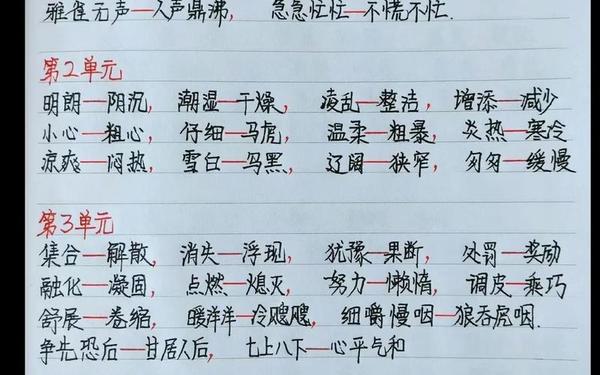 雅雀无声—人声鼎沸， 急急忙忙—不慌不忙.
第2单元
明朗—阴沉， 潮湿—干燥， 凌乱—整洁， 增添—减少
小心—粗心， 仔细—马虎， 温柔—粗暴， 炎热—寒冷
凉爽—闷热， 雪白—乌黑， 辽阔—狭窄， 匆匆—缓慢
第3单元
集合—解散， 消失—浮现， 犹豫—果断， 处罚—奖励
融化—凝固， 点燃—熄灭， 努力—懒惰， 调皮—乘巧
舒展—卷缩， 暖洋洋—冷飕飕， 细嚼慢咽—狼吞虎咽.
争先恐后—甘居人后， 七上八下—心平气和